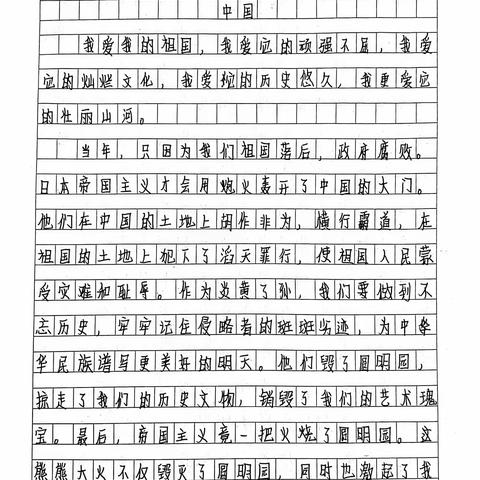 中国
我爱我的祖国，我爱它的顽强不屈，我爱
它的灿烂文化，我爱它的历史悠久，我更爱它
的壮丽山河。
当年，只因为我们祖国落后，政府腐败。
日本帝国主义才会用炮火轰开了中国的大门。
他们在中国的土地上胡作非为，横行霸道，在
祖国的土地上犯下了滔天罪行，使祖国人民蒙
受灾难和耻辱。作为炎黄子孙，我们要做到不
忘历史，牢牢记住侵略者的斑斑劣迹，为中华
华民族谱写更美好的明天。他们毁了圆明园，
掠走了我们的历史文物，销毁了我们的艺术瑰
宝。最后，帝国主义竟一把火烧了圆明园。这
熊熊大火不仅毁灭了圆明园，同时也激起了我